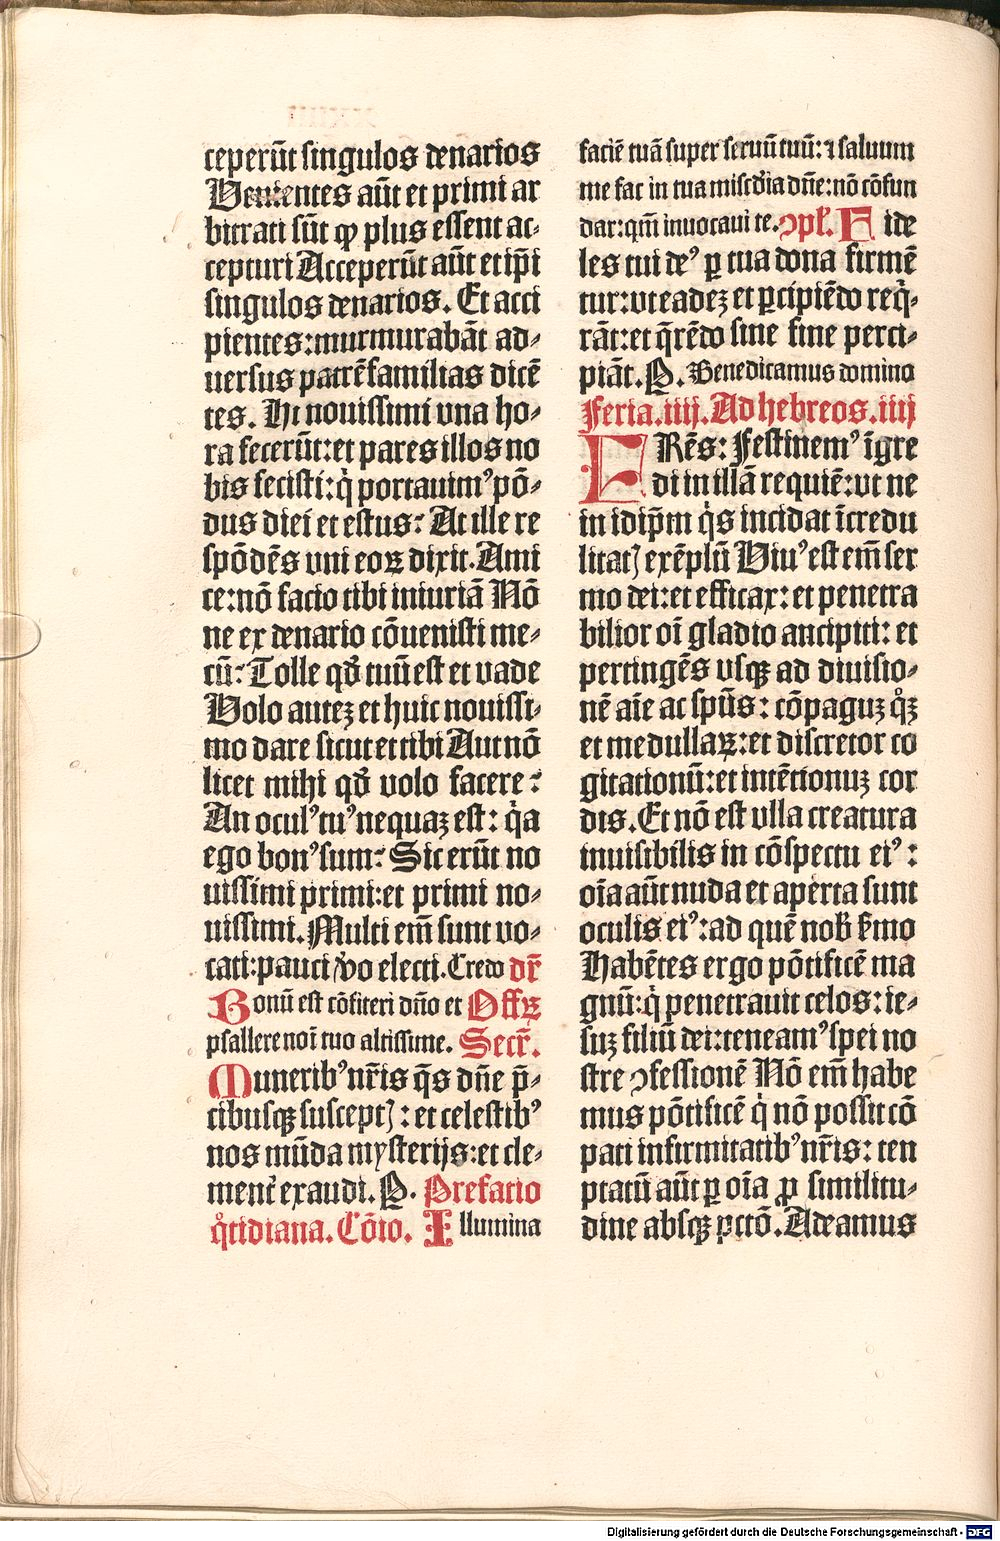 ceperūt singulos denarios
Venientes aūt et primi ar
bitrati sūt ꝙ plus essent ac⸗
cepturi Acceperūt aūt et ip̄i
singulos denarios. Et acci
pientes:murmurabāt ad⸗
uersus patrēfamilias dicē
tes. Hi nouissimi vna ho⸗
ra fecerūt:et pares illos no
bis fecisti:q̇ portauimꝰ pō⸗
dus diei et estus? At ille re
spōdēs vni eoꝝ dixit. Ami
ce:nō facio tibi iniuriā Nō
ne ex denario cōuenisti me⸗
cū? Tolle qđ tuū est et vade
Volo auteꝫ et huic nouissi⸗
mo dare sicut et tibi Aut nō
licet mihi qđ volo facere?
An oculꝰ tuꝰ nequaꝫ est: q̇a
ego bonꝰ sum? Sic erūt no
uissimi primi:et primi no⸗
uissimi. Multi em̄ sunt vo⸗
cati:pauci v̊o electi. Credo
Bonū est cōfiteri dn̄o et Offꝝ
psallere noī tuo altissime. Secr̄.
Muneribꝰ nr̄is q̄s dn̄e p̄⸗
cibusqꝫ susceptꝭ: et celestibꝰ
nos mūda mysterijs:et cle⸗
menť exaudi. P. Prefatio
q̊tidiana. Cōio. Illumina
faciē tuā super seruū tuū: ⁊ saluum
me fac in tua misc̄dia dn̄e:nō cōfun
dar:qm̄ inuocaui te. ꝯpł. Fide
les tui deꝰ ꝑ tua dona firmē
tur:vt eadeꝫ et ꝑcipiēdo req̇⸗
rāt:et q̄rēdo sine fine perci⸗
piāt. P. Benedicamus domino
Feria.iiij. Ad hebreos.iiij
FRēs: Festinemꝰ īgre
di in illā requiē:vt ne
in idip̄m q̇s incidat īcredu
litatꝭ exēplū Viuꝰ est em̄ ser
mo dei:et efficax: et penetra
bilior oī gladio ancipiti: et
pertingēs vsqꝫ ad diuisio⸗
nē aīe ac spūs: cōpaguꝫ q̊ꝫ
et medullaꝝ:et discretor co
gitationū:et intētionuꝫ cor
dis. Et nō est vlla creatura
inuisibilis in cōspectu eiꝰ:
oīa aūt nuda et aperta sunt
oculis eiꝰ:ad quē nob̄ s̄mo
Habētes ergo pōtificē ma
gnū:q̇ penetrauit celos:ie⸗
suꝫ filiū dei:teneamꝰ spei no
stre ꝯfessionē Nō em̄ habe
mus pōtificē q̇ nō possit cō
pati infirmitatibꝰ nr̄is: ten
ptatū aūt ꝑ oīa ꝓ similitu⸗
dine absqꝫ pctō. Adeamus
Digitalisierung gefördert durch die Deutsche Forschungsgemeinschaft - DFG